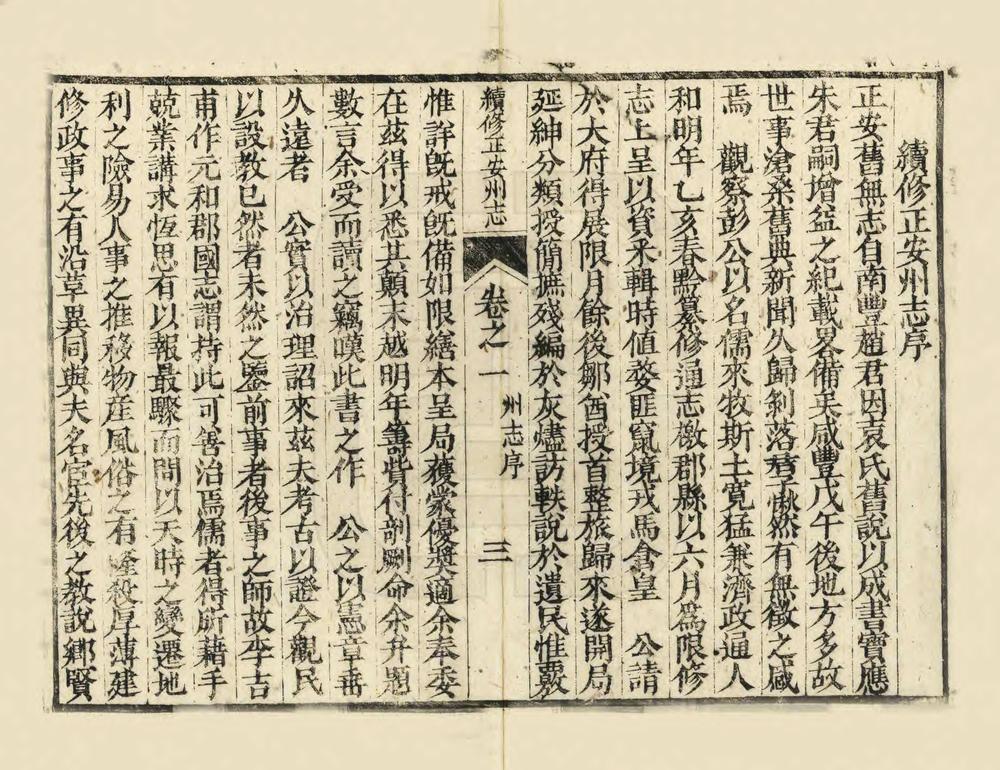 續修正安州志序
正安舊無志自南豐趙君因袁氏舊說以成書寶應
朱君嗣增益之紀載畧備矣咸豐戊午後地方多故
世事滄桑舊典新聞久歸剝落耆愀然有無徵之感
焉　觀察彭公以名儒來牧斯土寛猛兼濟政通人
和明年乙亥春黔纂修通志檄郡縣以六月爲限修
志上呈以資采輯時值婺匪竄境戎馬倉皇　公請
於大府得展限月餘後鄒酋授首整旅歸來遂開局
延紳分類授簡摭殘編於灰燼訪軼說於遺民惟覈
續修正安州志　卷之一　州志序　三
惟詳旣戒旣備如限繕本呈局獲蒙優奬適余奉委
在茲得以悉其顛末越明年籌貲付剞劂命余弁題
數言余受而讀之竊嘆此書之作　公之以憲章垂
久遠者　公實以治理詔來茲夫考古以證今觀民
以設教已然者未然之鑒前事者後事之師故李吉
甫作元和郡國志謂持此可善治焉儒者得所藉手
兢業講求恆思有以報最驟而問以天時之變遷地
利之險易人事之推移物産風俗之有隆殺厚薄建
修政事之有沿革異同與夫名宦先後之教說鄉賢